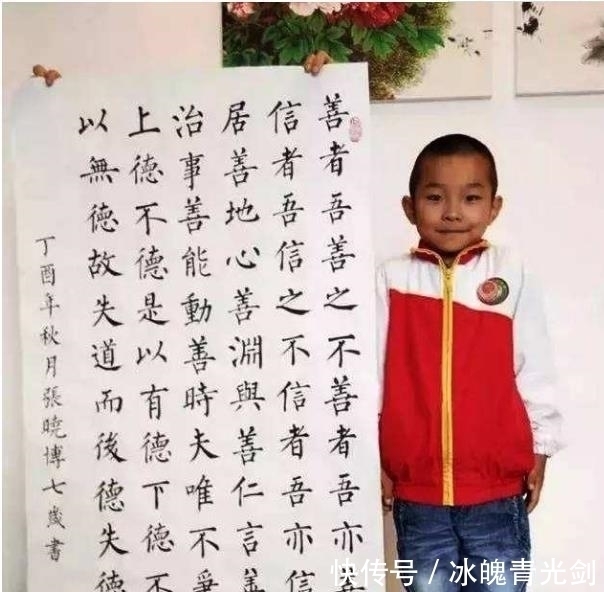 善者吾善之不善者吾亦
信者吾信之不信者吾亦信
居善地心善淵與善仁言善
治事善能動善時夫唯不爭
上德不德是以有德下德不
以無德故失道而後德失德
丁酉年秋月張曉博七歲書
快传号 / 冰魄青光剑